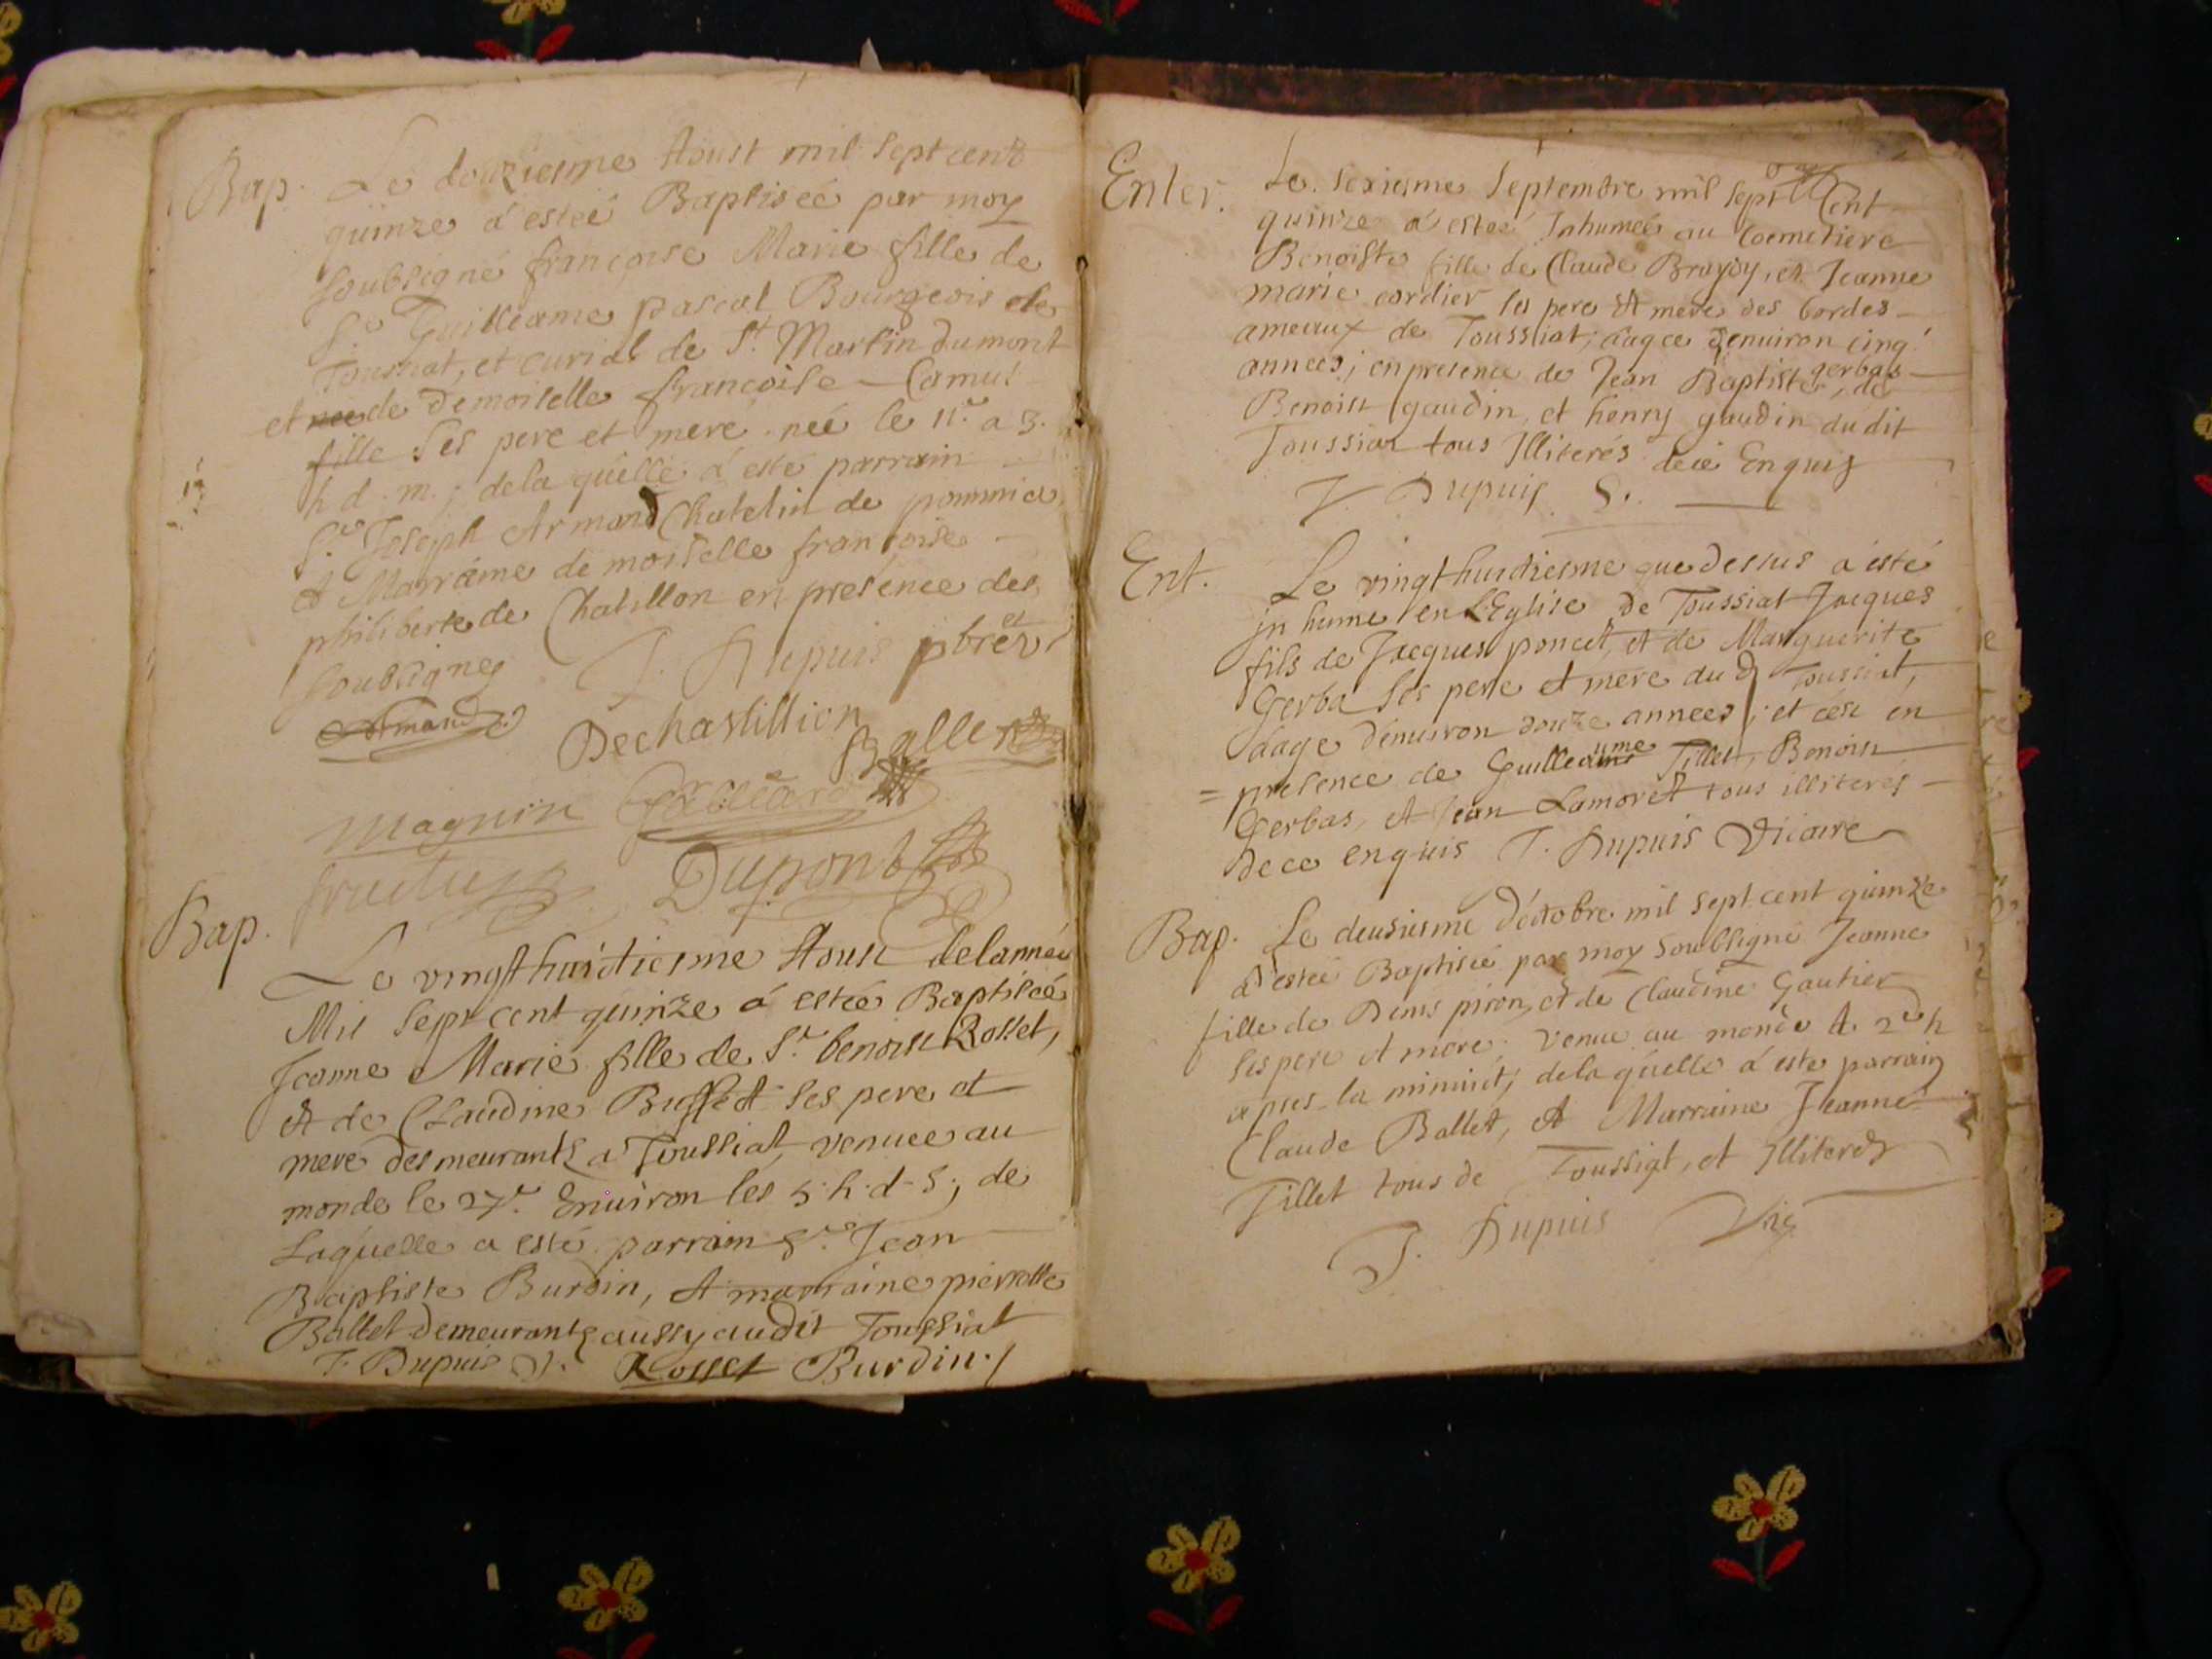 Bap. Le douziesme Aoust mil sept cent
quinze a esteé Baptiseé par moy
soubsigné francoise Marie fille de
Sr Guilleame pascal Bourgeois de
Toussiat, et curial de St. Martin dumont
et de Demoiselle francoise Camus
fille ses pere et mere neé le 11e a 3.
h d. m.; dela quelle a esté parrain
Sr Joseph Armand Chatelin de
et Marraine de moiselle francoise
philiberte de Chatillon en presence des
soubsignes J. Dupuis pbre
Armand
Dechastillion
Ballet
Magnin
Dupont
Bap.
Le vingt huictiesme Aoust de lanneé
Mil sept cent quinze a esteé Baptiseé
Jeanne Marie fille de Sr. benoist Rosset,
et de Claudine Buffet ses pere et
mere desmeurants a Toussiat, venuee au
monde le 27e. Enuiron les 5. h. d. S; de
Laquelle a esté parrain Sr. Jean
Baptiste Burdin, et marraine pierrette
Ballet demeurants aussy audit Toussiat
J. Dupuis V. Rosset Burdin.
Enter. Le sexiesme Septembre mil sept Cent
quinze a esteé Inhumeé au Coemetiere
Benoiste fille de Claude, et Jeanne
marie cordier ses pere et mere des bordes
ameaux de Toussiat; dagee denuiron cinq
anneés; en presence de Jean Baptiste gerbas, de
Benoist gaudin, et henry gaudin dudit
Toussiat tous Illiterés dece Enquis
J. Dupuis
Ent. Le vingt huictiesme que dessus a esté
in humé en L'Eglise de Toussiat Jacques
fils de Jacques poncet, et de Marguerite
Gerba ses pere et mere du d Toussiat,
dage denuiron douze anneés; et cést en
= presence de Guilleaume Tillet, Benoist
Gerbas, et Jean Lamoret tous illiterés
de ce enquis J. Dupuis Vicaire
Bap. Le deusiesme d'octobre mil sept cent quinze
a esteé Baptiseé par moy soubsigné Jeanne
fille de Denis piron, et de Claudine Gautier
ses pere et mere; venue au monde A 2e h
apres la minuict; dela quelle a este parrain
Claude Ballet, et Marraine Jeanne
Tillet tous de Toussiat, et Illiterés
J. Dupuis Vic